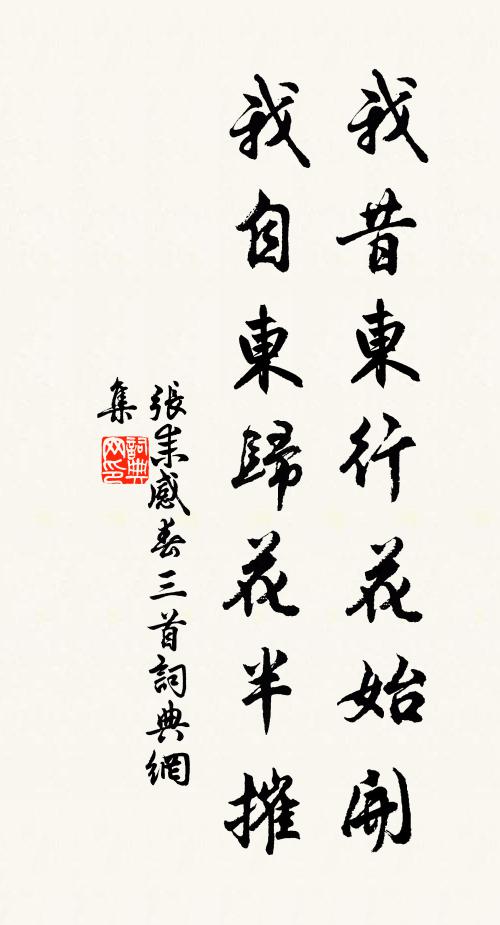 我昔東行花始開
我自東歸花半摧
張耒感春三首詞典網
集
詞典网印